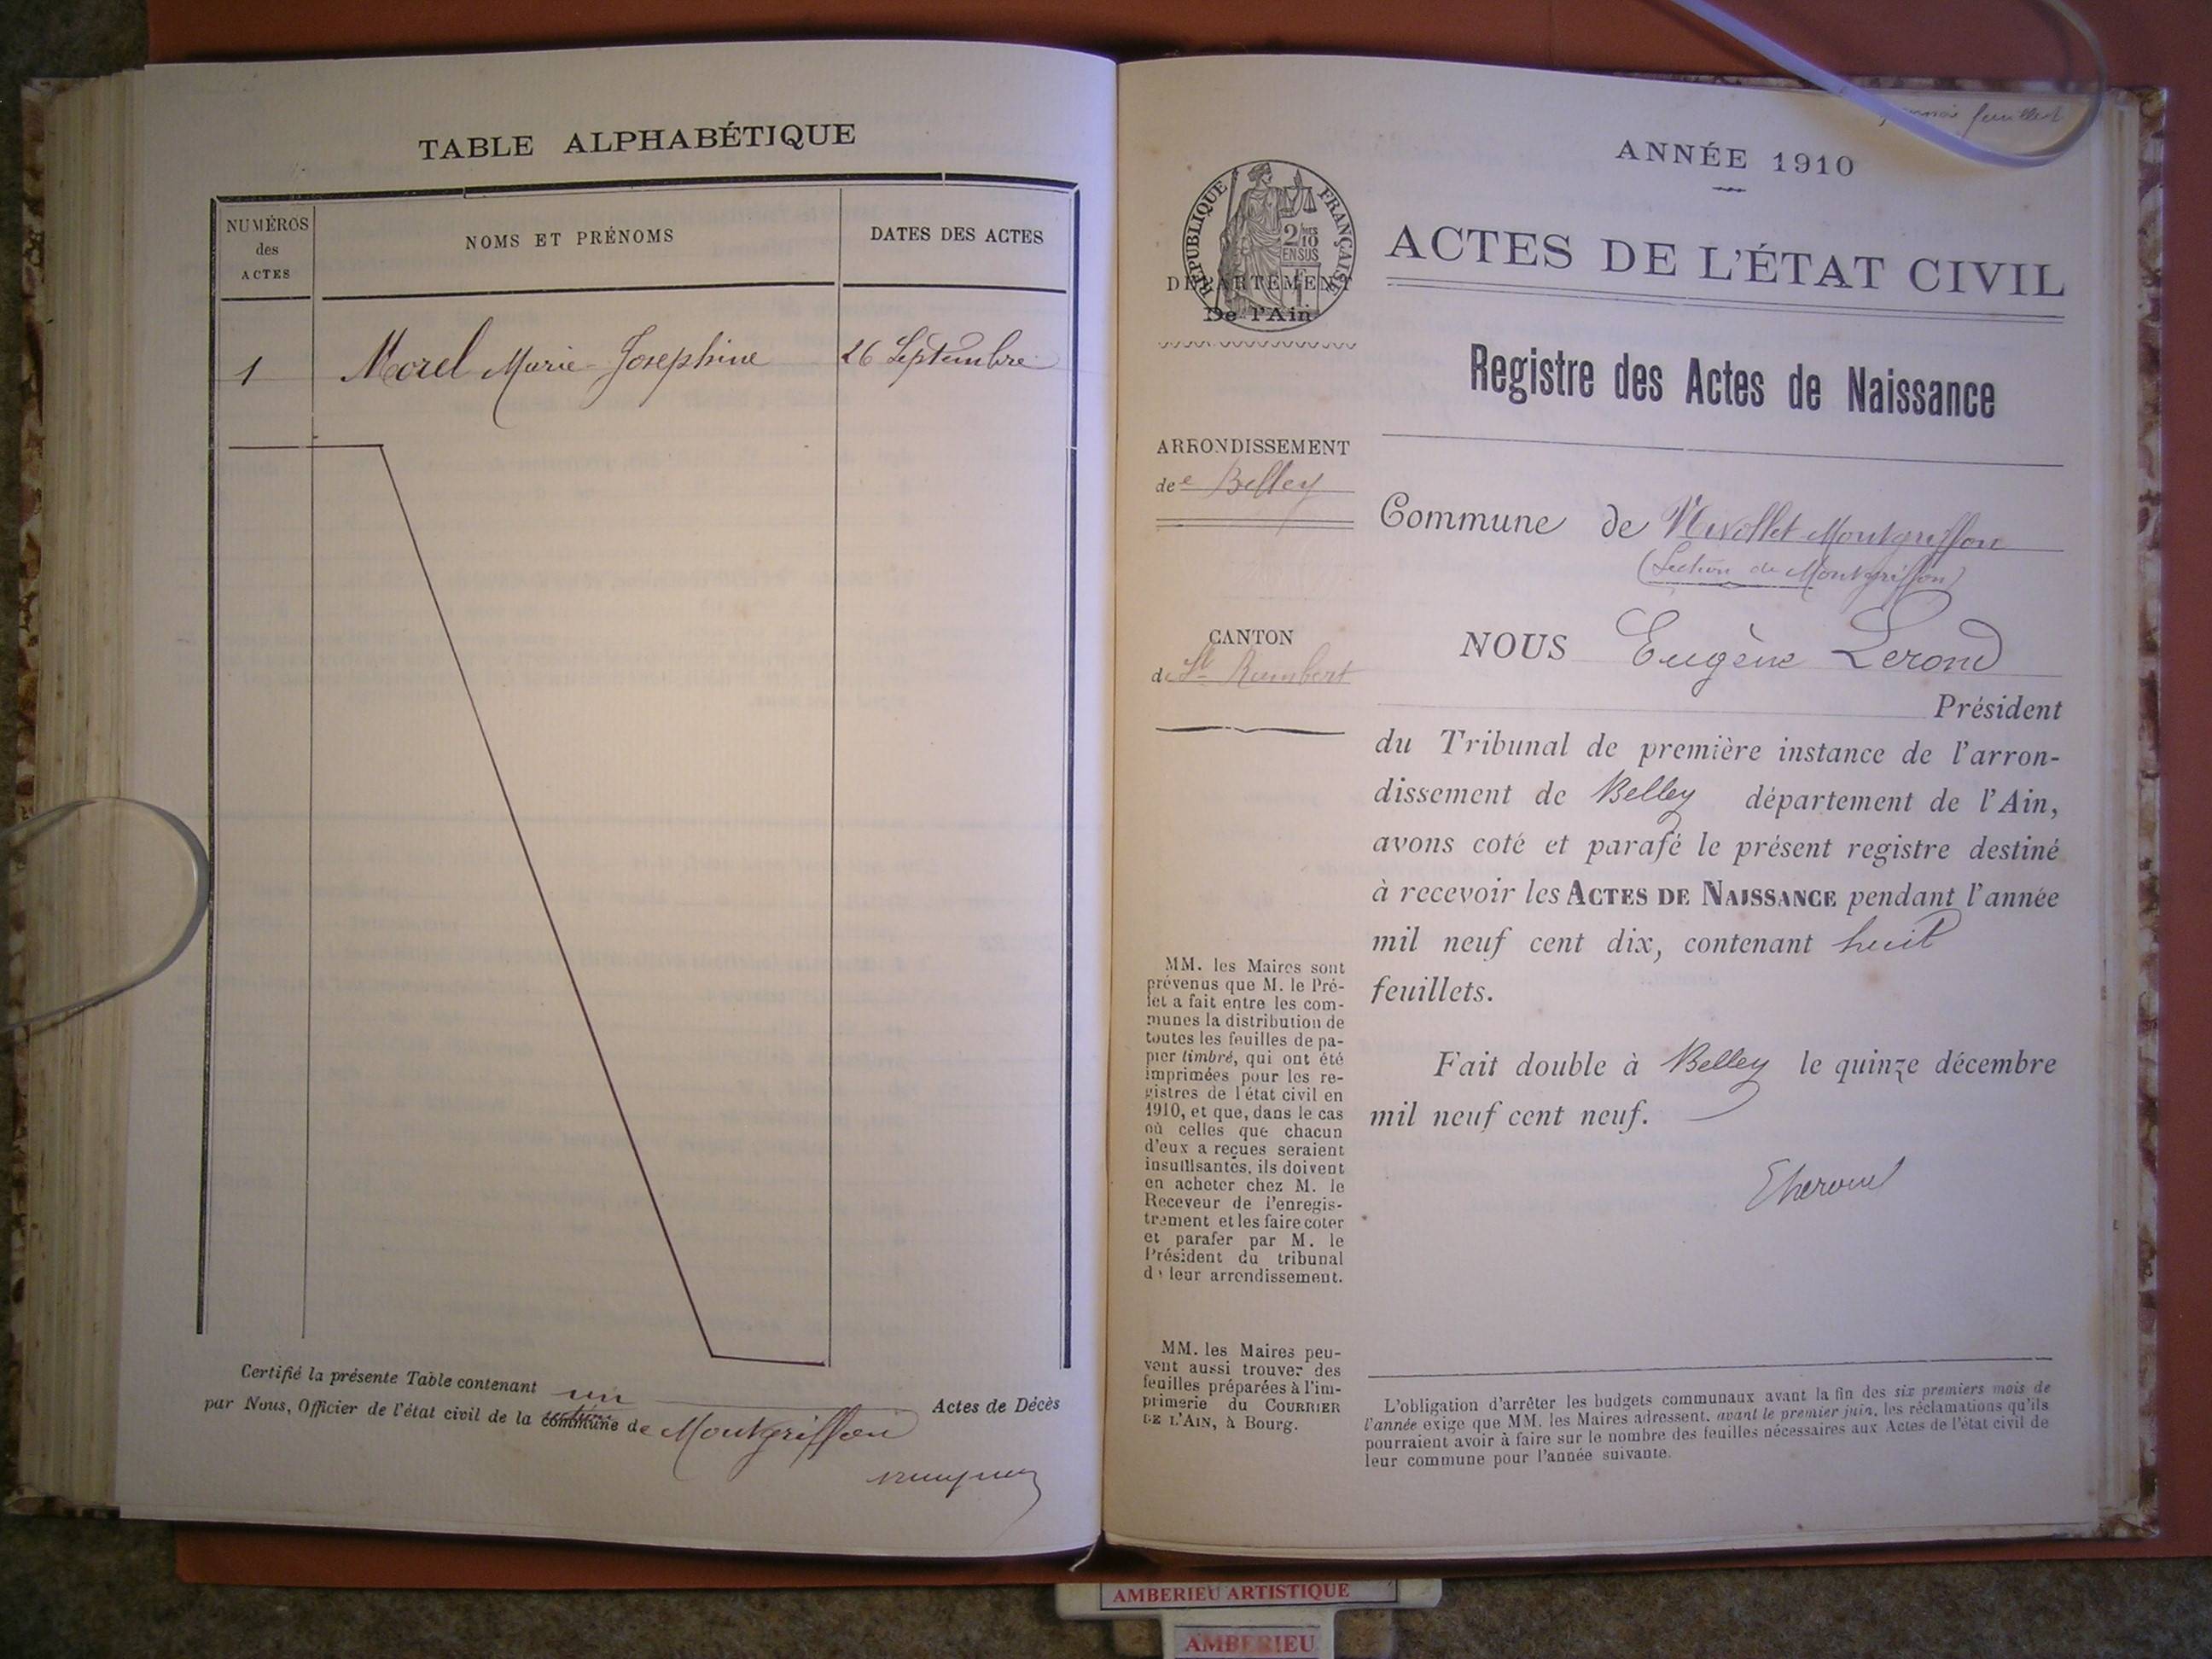 TABLE ALPHABÉTIQUE
NUMÉROS
des
ACTES
NOMS ET PRÉNOMS
DATES DES ACTES
1 Morel Marie-Josephine 26 Septembre
Certifié la présente Table contenant un Actes de Décès
par Nous, Officier de l'état civil de la commune de Montgriffon
feuillet
ANNÉE 1910
RÉPUBLIQUE FRANÇAISE
2/10
EN SUS
DÉPARTEMENT
De l'Ain
ACTES DE L'ÉTAT CIVIL
Registre des Actes de Naissance
ARRONDISSEMENT
de Belley
CANTON
de St Rambert
Commune de Nivollet-Montgriffon
(Section de Montgriffon)
NOUS Eugène Lerond
Président
du Tribunal de première instance de l'arron-
dissement de Belley département de l'Ain,
avons coté et parafé le présent registre destiné
à recevoir les ACTES DE NAISSANCE pendant l'année
mil neuf cent dix, contenant huit
feuillets.
Fait double à Belley le quinze décembre
mil neuf cent neuf.
MM. les Maires sont
prévenus que M. le Pré-
fet a fait entre les com-
munes la distribution de
toutes les feuilles de pa-
pier timbré, qui ont été
imprimées pour les re-
gistres de l'état civil en
1910, et que, dans le cas
où celles que chacun
d'eux a reçues seraient
insuffisantes, ils doivent
en acheter chez M. le
Receveur de l'enregis-
trement et les faire coter
et parafer par M. le
Président du tribunal
de leur arrondissement.
MM. les Maires peu-
vent aussi trouver des
feuilles préparées à l'im-
primerie du COURRIER
DE L'AIN, à Bourg.
L'obligation d'arrêter les budgets communaux avant la fin des six premiers mois de
l'année exige que MM. les Maires adressent, avant le premier juin, les réclamations qu'ils
pourraient avoir à faire sur le nombre des feuilles nécessaires aux Actes de l'état civil de
leur commune pour l'année suivante.
AMBERIEU ARTISTIQUE
AMBERIEU